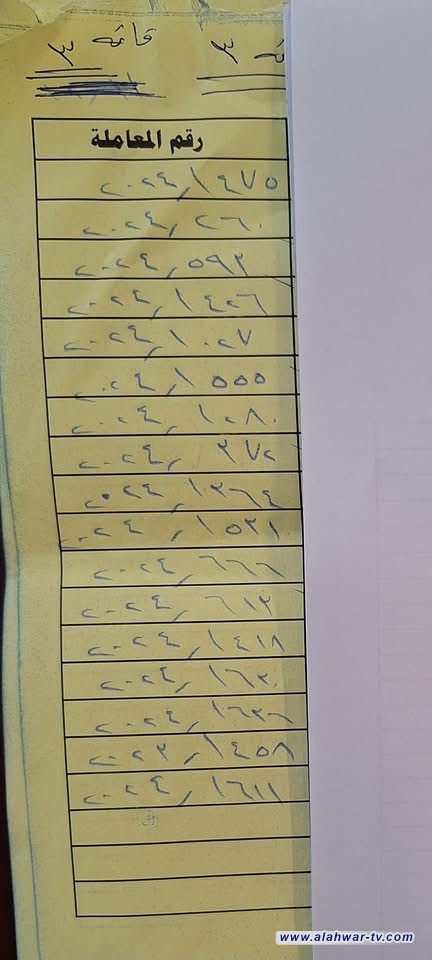 قائمة ٣
رقم المعاملة
٢٠٢٤/١٤٧٥
٢٠٢٤/٢٦٠
٢٠٢٤/٥٩٢
٢٠٢٤/١٤٢٦
٢٠٢٤/١٠٢٧
٢٠٢٤/١٥٥٥
٢٠٢٤/١٠٨٠
٢٠٢٤/٣٧٢
٢٠٢٤/١٣٦٤
٢٠٢٤/١٥٣١
٢٠٢٤/٦٦٦
٢٠٢٤/٦١٢
٢٠٢٤/١٤١٨
٢٠٢٤/١٦٢٠
٢٠٢٤/١٦٢٦
٢٠٢٣/١٤٥٨
٢٠٢٤/١٦١١
www.alahwar-tv.com